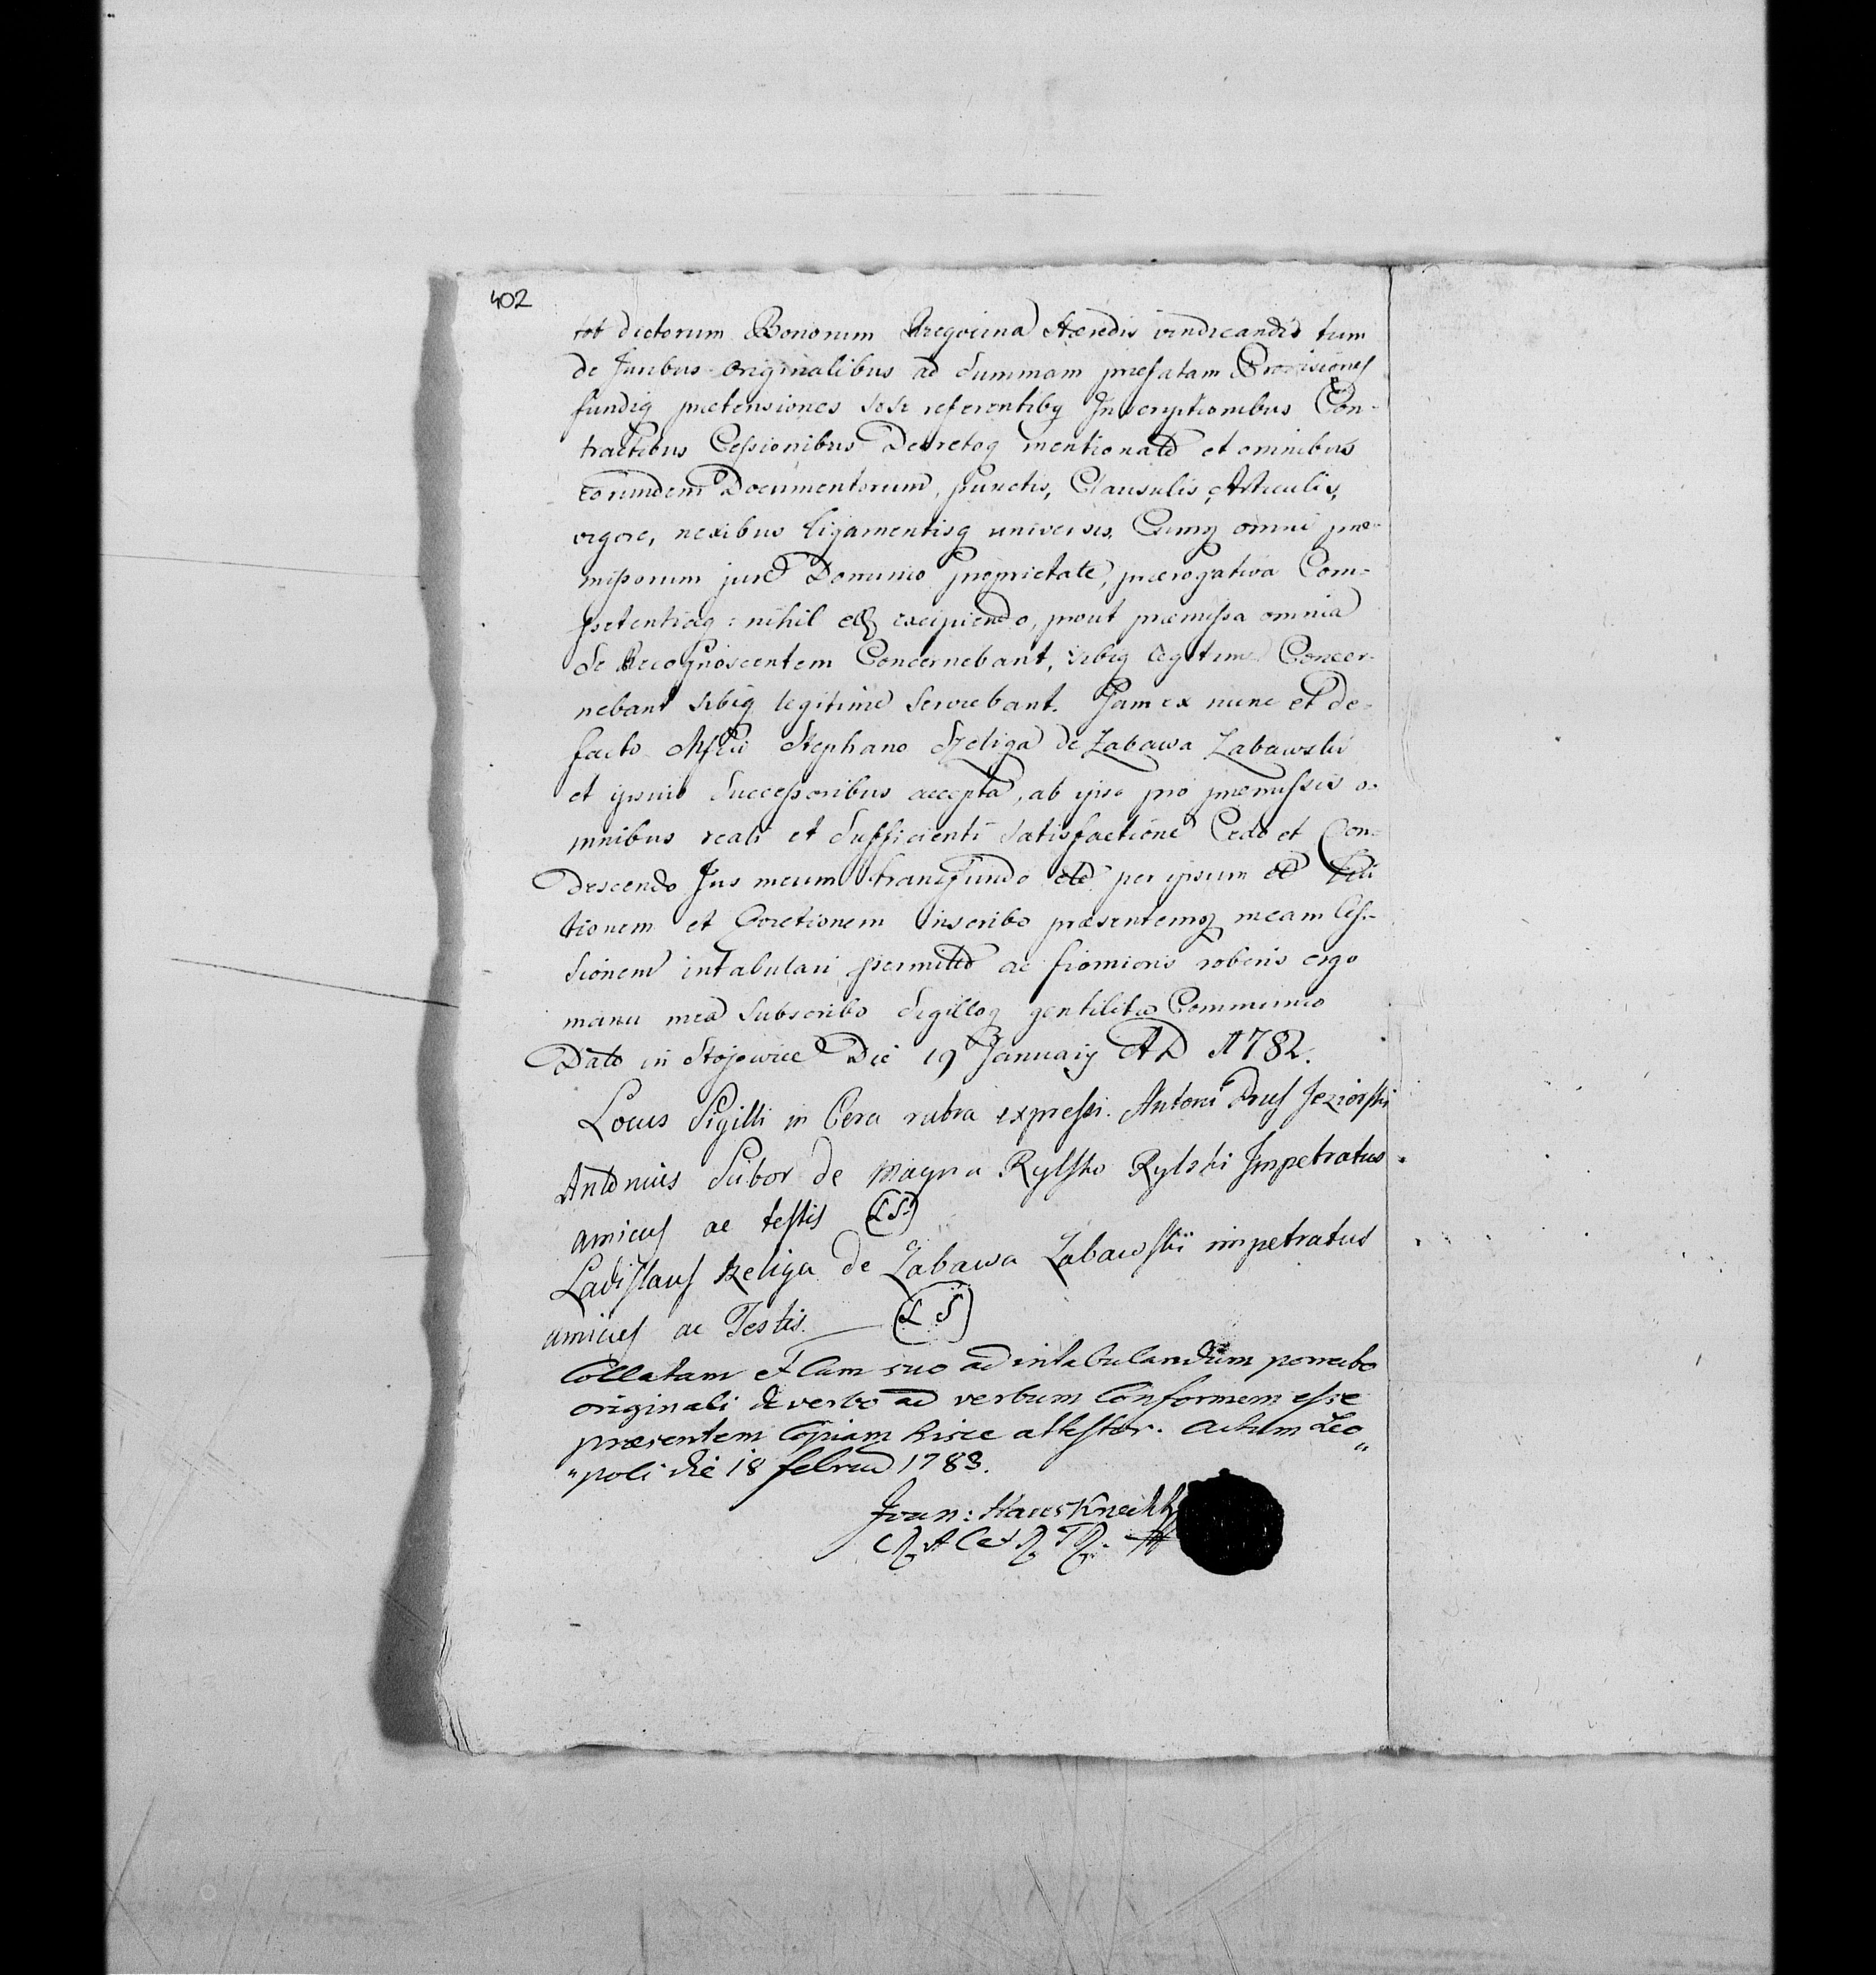 402
dictorum Bonorum Hæredis vindicandis tum
de Juribus originalibus ad Summam præfatam Provisiones
fundiq prætensiones sese referentibq Inscriptionibus Con-
tractibus Cessionibus Decretoq mentionato et omnibus
eorundem Documentorum, punctis, Clausulis, Articulis,
vigore, nexibus ligamentisq universis. Cumq omni præ-
missorum jure Dominio proprietate, prærogativa Com-
petentiaq: nihil excipiendo, prout præmissa omnia
Se Recognoscentem Concernebant, sibiq legitime Concer-
nebant sibiq legitime Servrebant. Jam ex nunc et de
facto Stephano Szeliga de Zabawa Zabawski
et ipsius Successoribus accepta, ab ipso pro præmissis o-
mnibus reali et Sufficienti Satisfactione Cedo et Con-
descendo Jus meum transfundo per ipsum
tionem et inscribo præsentemq meam Ces-
sionem intabulari permitto ac firmioris roboris ergo
manu mea Subscribo Sigilloq gentilitio Communio
Dato in Stojowice Die 19 Januarij AD 1782.
Locus Sigilli in Cera rubra expressi. Antoni Prus Jezierski
Antonius Scibor de Magna Rylsko Rylski Impetratus
amicus ac testis (LS)
Ladislaus Szeliga de Zabawa Zabawski impetratus
amicus ac Testis. (L S)
Collatam et Cum suo ad intabulandum
originali de verbo ad verbum Conformem esse
præsentem Copiam hisce attestor. Actum Leo„
„poli die 18 1783.
Joan: Hausknecht